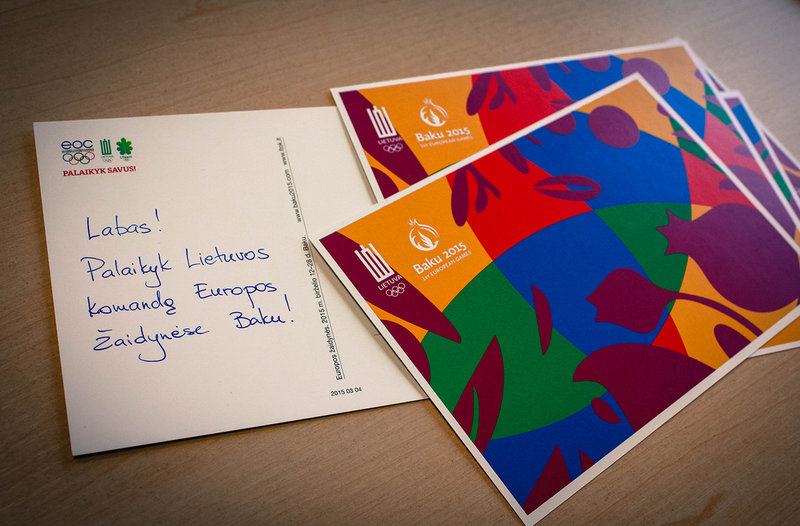 eoc
LIETUVA
PALAIKYK SAVUS!
Labas!
Palaikyk Lietuvos
komandą Europos
Žaidynėse Baku!
Europos žaidynės. 2015 m. birželio 12-28 d. Baku
www.baku2015.com www.ltok.lt
2015 03 04
LIETUVA
Baku 2015
1st EUROPEAN GAMES
LIETUVA
Baku 2015
1st EUROPEAN GAMES